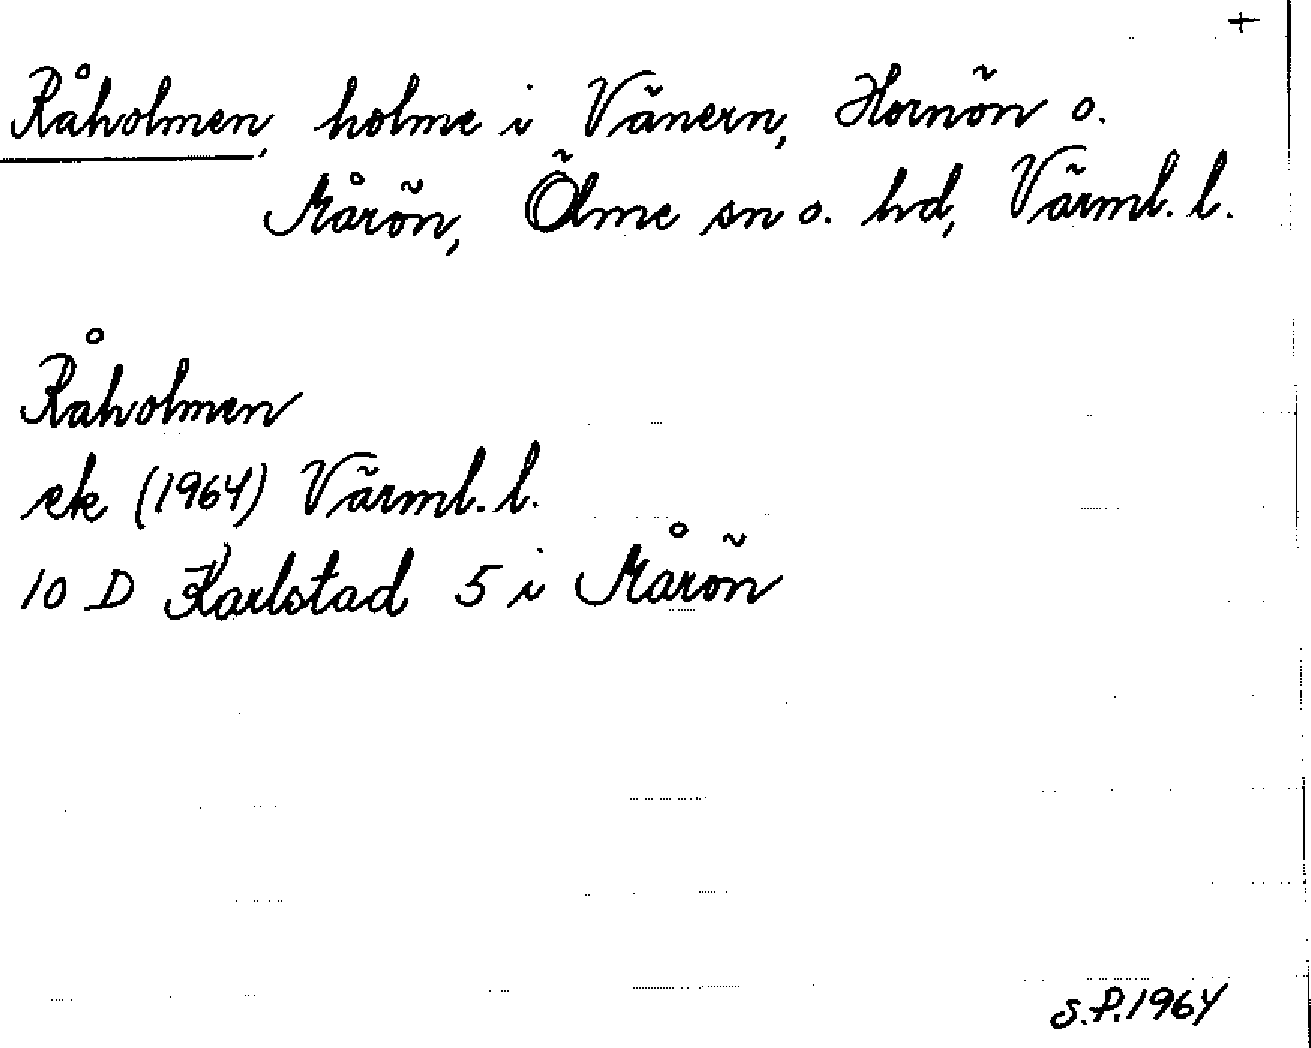 +
Råholmen, holme i Vänern, Hornön o.
Mårön, Ölme sn o. hd, Värml. l.
Råholmen
ek (1964) Värml. l.
10 D Karlstad 5 i Mårön
S.P. 1964